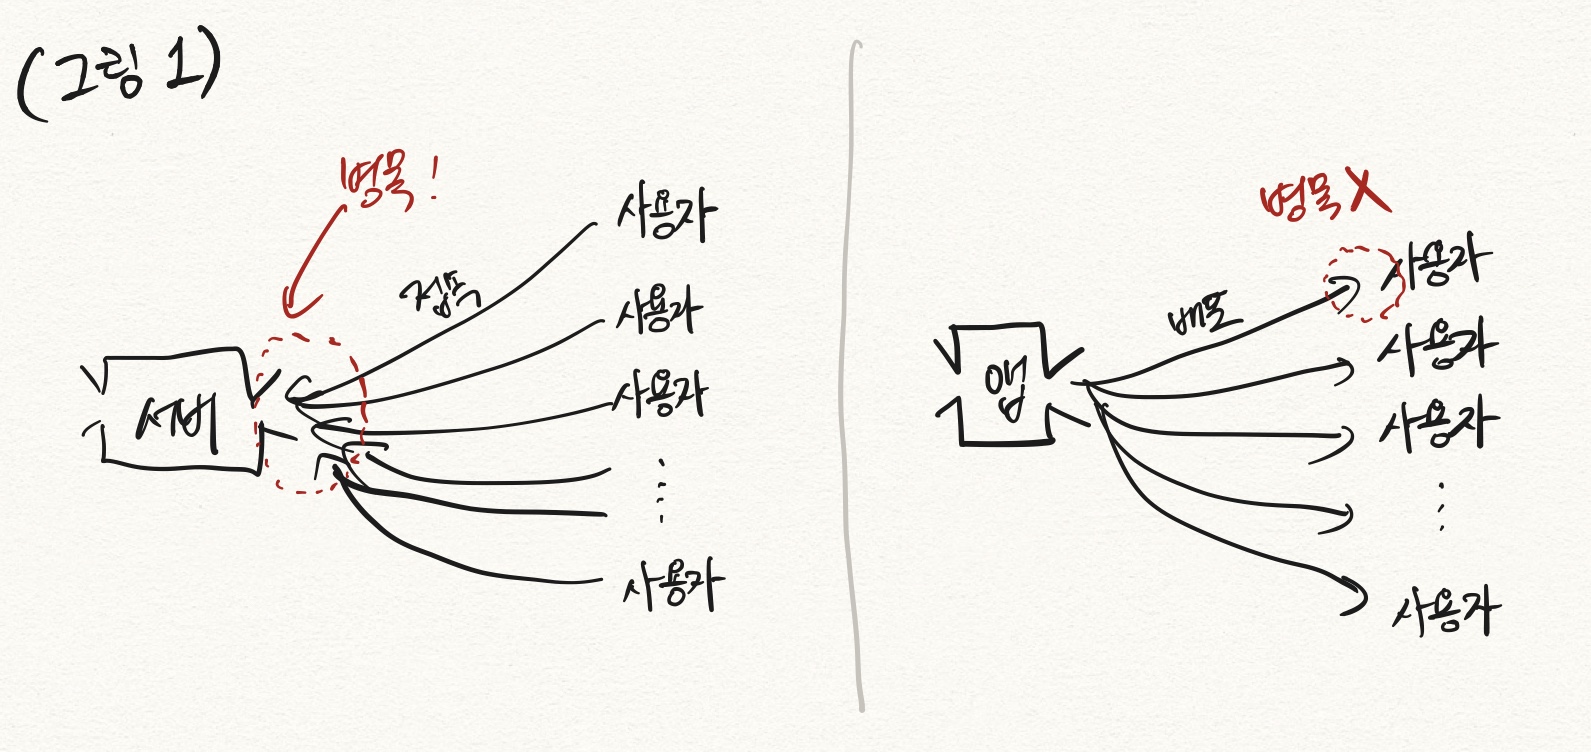 (그림 1)
병목!
접속
서버
사용자
사용자
사용자
사용자
병목 X
배포
앱
사용자
사용자
사용자
사용자